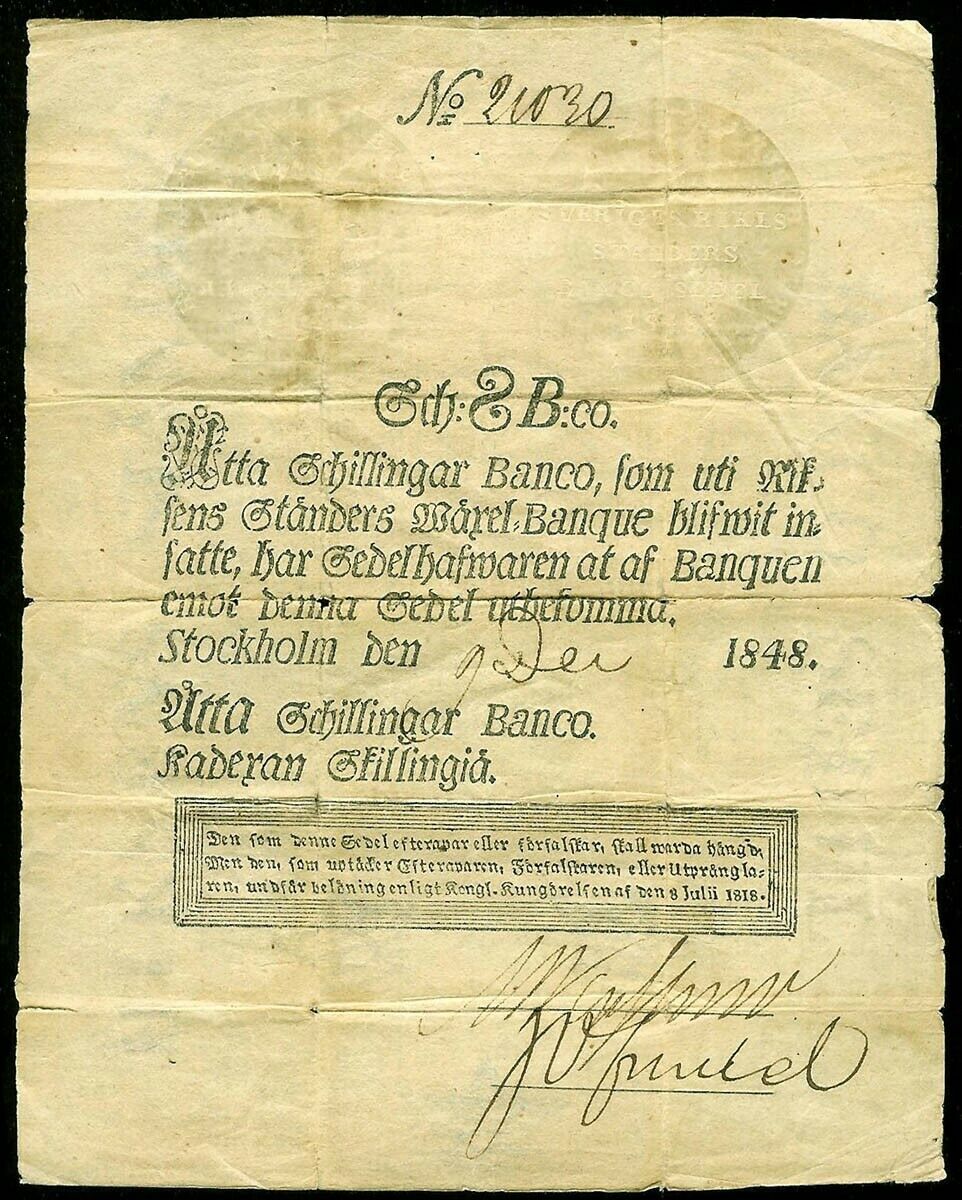 No 21030
SVERIGES RIKES
STÄNDERS
Sch: 8 B:co.
Åtta Schillingar Banco, som uti Rik-
sens Ständers Wäxel-Banque blifwit in-
satte, har Sedelhafwaren at af Banquen
emot denna Sedel utbekomma.
Stockholm den 9 Dec 1848.
Åtta Schillingar Banco.
Kadexan Skillingiä.
Den som denne Sedel efterapar eller förfalskar, skall warda hängd;
Men den, som uptäcker Efteraparen, Förfalskaren, eller Utprångla-
ren, undfår belöning enligt Kongl. Kungörelsen af den 8 Julii 1818.